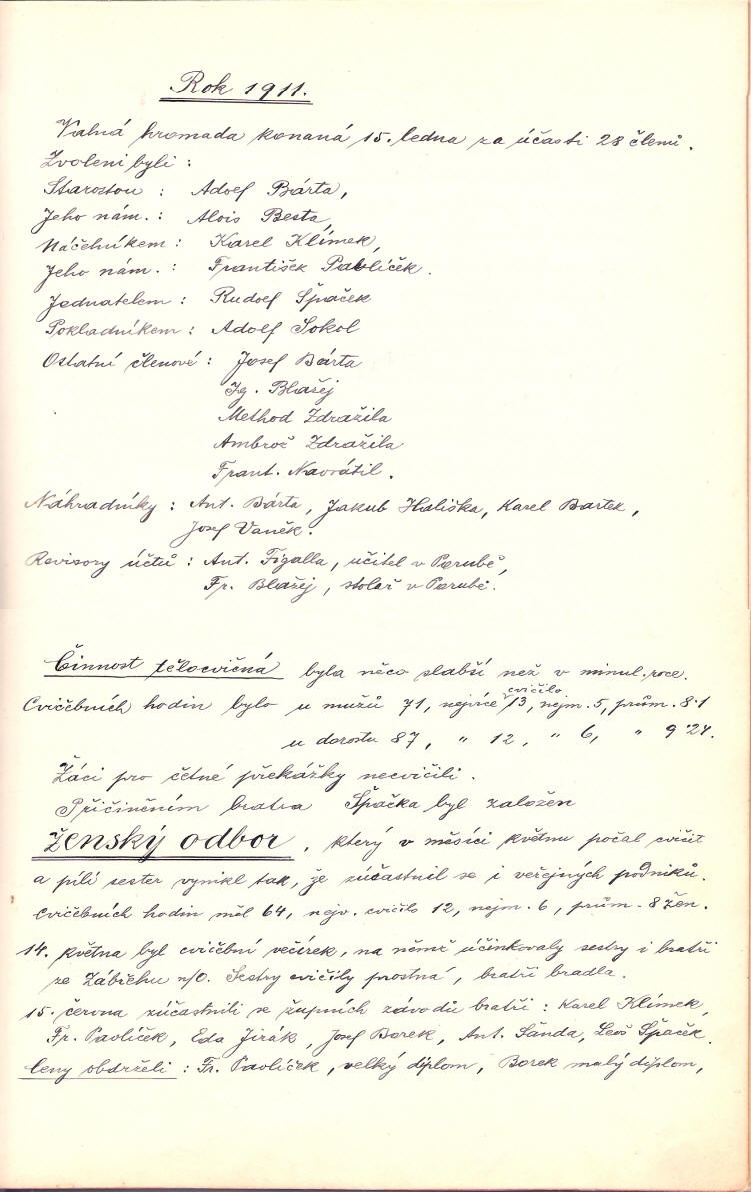 Rok 1911.
Valná hromada konaná 15. ledna za účasti 28 členů.
Zvoleni byli :
Starostou : Adolf Bárta,
Jeho nám. : Alois Besta,
Náčelníkem : Karel Klímek,
Jeho nám. : František Pavlíček.
Jednatelem : Rudolf Špaček
Pokladníkem : Adolf Sokol
Ostatní členové : Josef Bárta
Ig. Blažej
Method Zdražila
Ambrož Zdražila
Frant. Navrátil.
Náhradníky : Ant. Bárta, Jakub Hališka, Karel Bartek,
Josef Vaněk.
Revisory účtů : Ant. Figalla, učitel v Porubě,
Fr. Blažej, stolař v Porubě.
Činnost tělocvičná byla něco slabší než v minul. roce.
Cvičebních hodin bylo u mužů 71, nejvíce cvičilo 13, nejm. 5, prům. 8·1
u dorostu 87, " 12, " 6, " 9·24.
Žáci pro četné překážky necvičili.
Přičiněním bratra Špačka byl založen
Ženský odbor, který v měsíci květnu počal cvičit
a pílí sester vynikl tak, že zúčastnil se i veřejných podniků.
Cvičebních hodin měl 64, nejv. cvičilo 12, nejm. 6, prům. 8 žen.
14. května byl cvičební večírek, na němž účinkovaly sestry i bratři
ze Zábřehu n/O. Sestry cvičily prostná, bratři bradla.
15. června zúčastnili se župních závodů bratři : Karel Klímek,
Fr. Pavlíček, Eda Jirák, Josef Borek, Ant. Šanda, Leoš Špaček.
Ceny obdrželi : Fr. Pavlíček, velký diplom, Borek malý diplom,